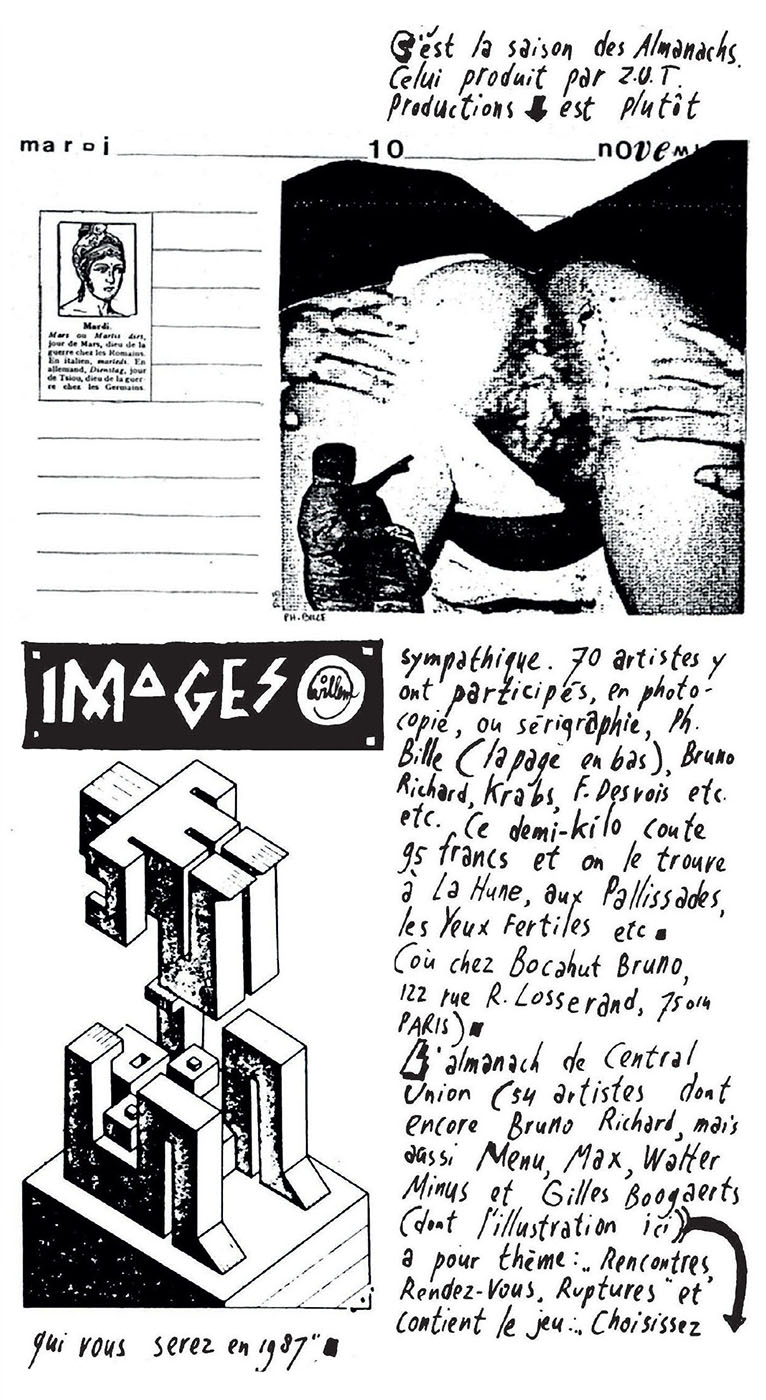 C'est la saison des Almanachs.
Celui produit par Z.U.T.
Productions est plutôt
mardi 10 novem
Mardi.
Mars ou Martis dies,
jour de Mars, dieu de la
guerre chez les Romains.
En italien, martedi. En
allemand, Dienstag, jour
de Tsiou, dieu de la guer-
re chez les Germains.
PH. BILLE
IMAGES Willem
sympathique. 70 artistes y
ont participés, en photo-
copie, ou sérigraphie, Ph.
Bille (la page en bas), Bruno
Richard, Krabs, F. Desvois etc.
etc. Ce demi-kilo coute
95 francs et on le trouve
à La Hune, aux Pallissades,
les Yeux Fertiles etc
(où chez Bocahut Bruno,
122 rue R. Losserand, 75014
PARIS)
L'almanach de Central
Union (54 artistes dont
encore Bruno Richard, mais
aussi Menu, Max, Walter
Minus et Gilles Boogaerts
(dont l'illustration ici))
a pour thème: „Rencontres,
Rendez-Vous, Ruptures" et
contient le jeu: „Choisissez
qui vous serez en 1987"